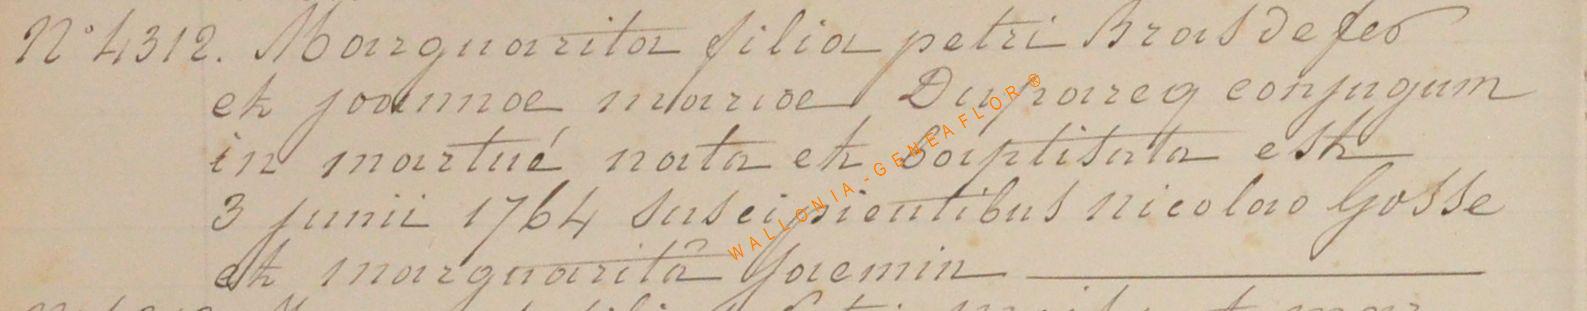 N° 4312. Marguarita filia petri Brasdefer
et joannae mariae Duparcq conjugum
in martué nata et baptisata est
3 junii 1764 suscipientibus nicolao Gosse
et marguaritâ Jaemin
WALLONIA-GENEAFLOR®